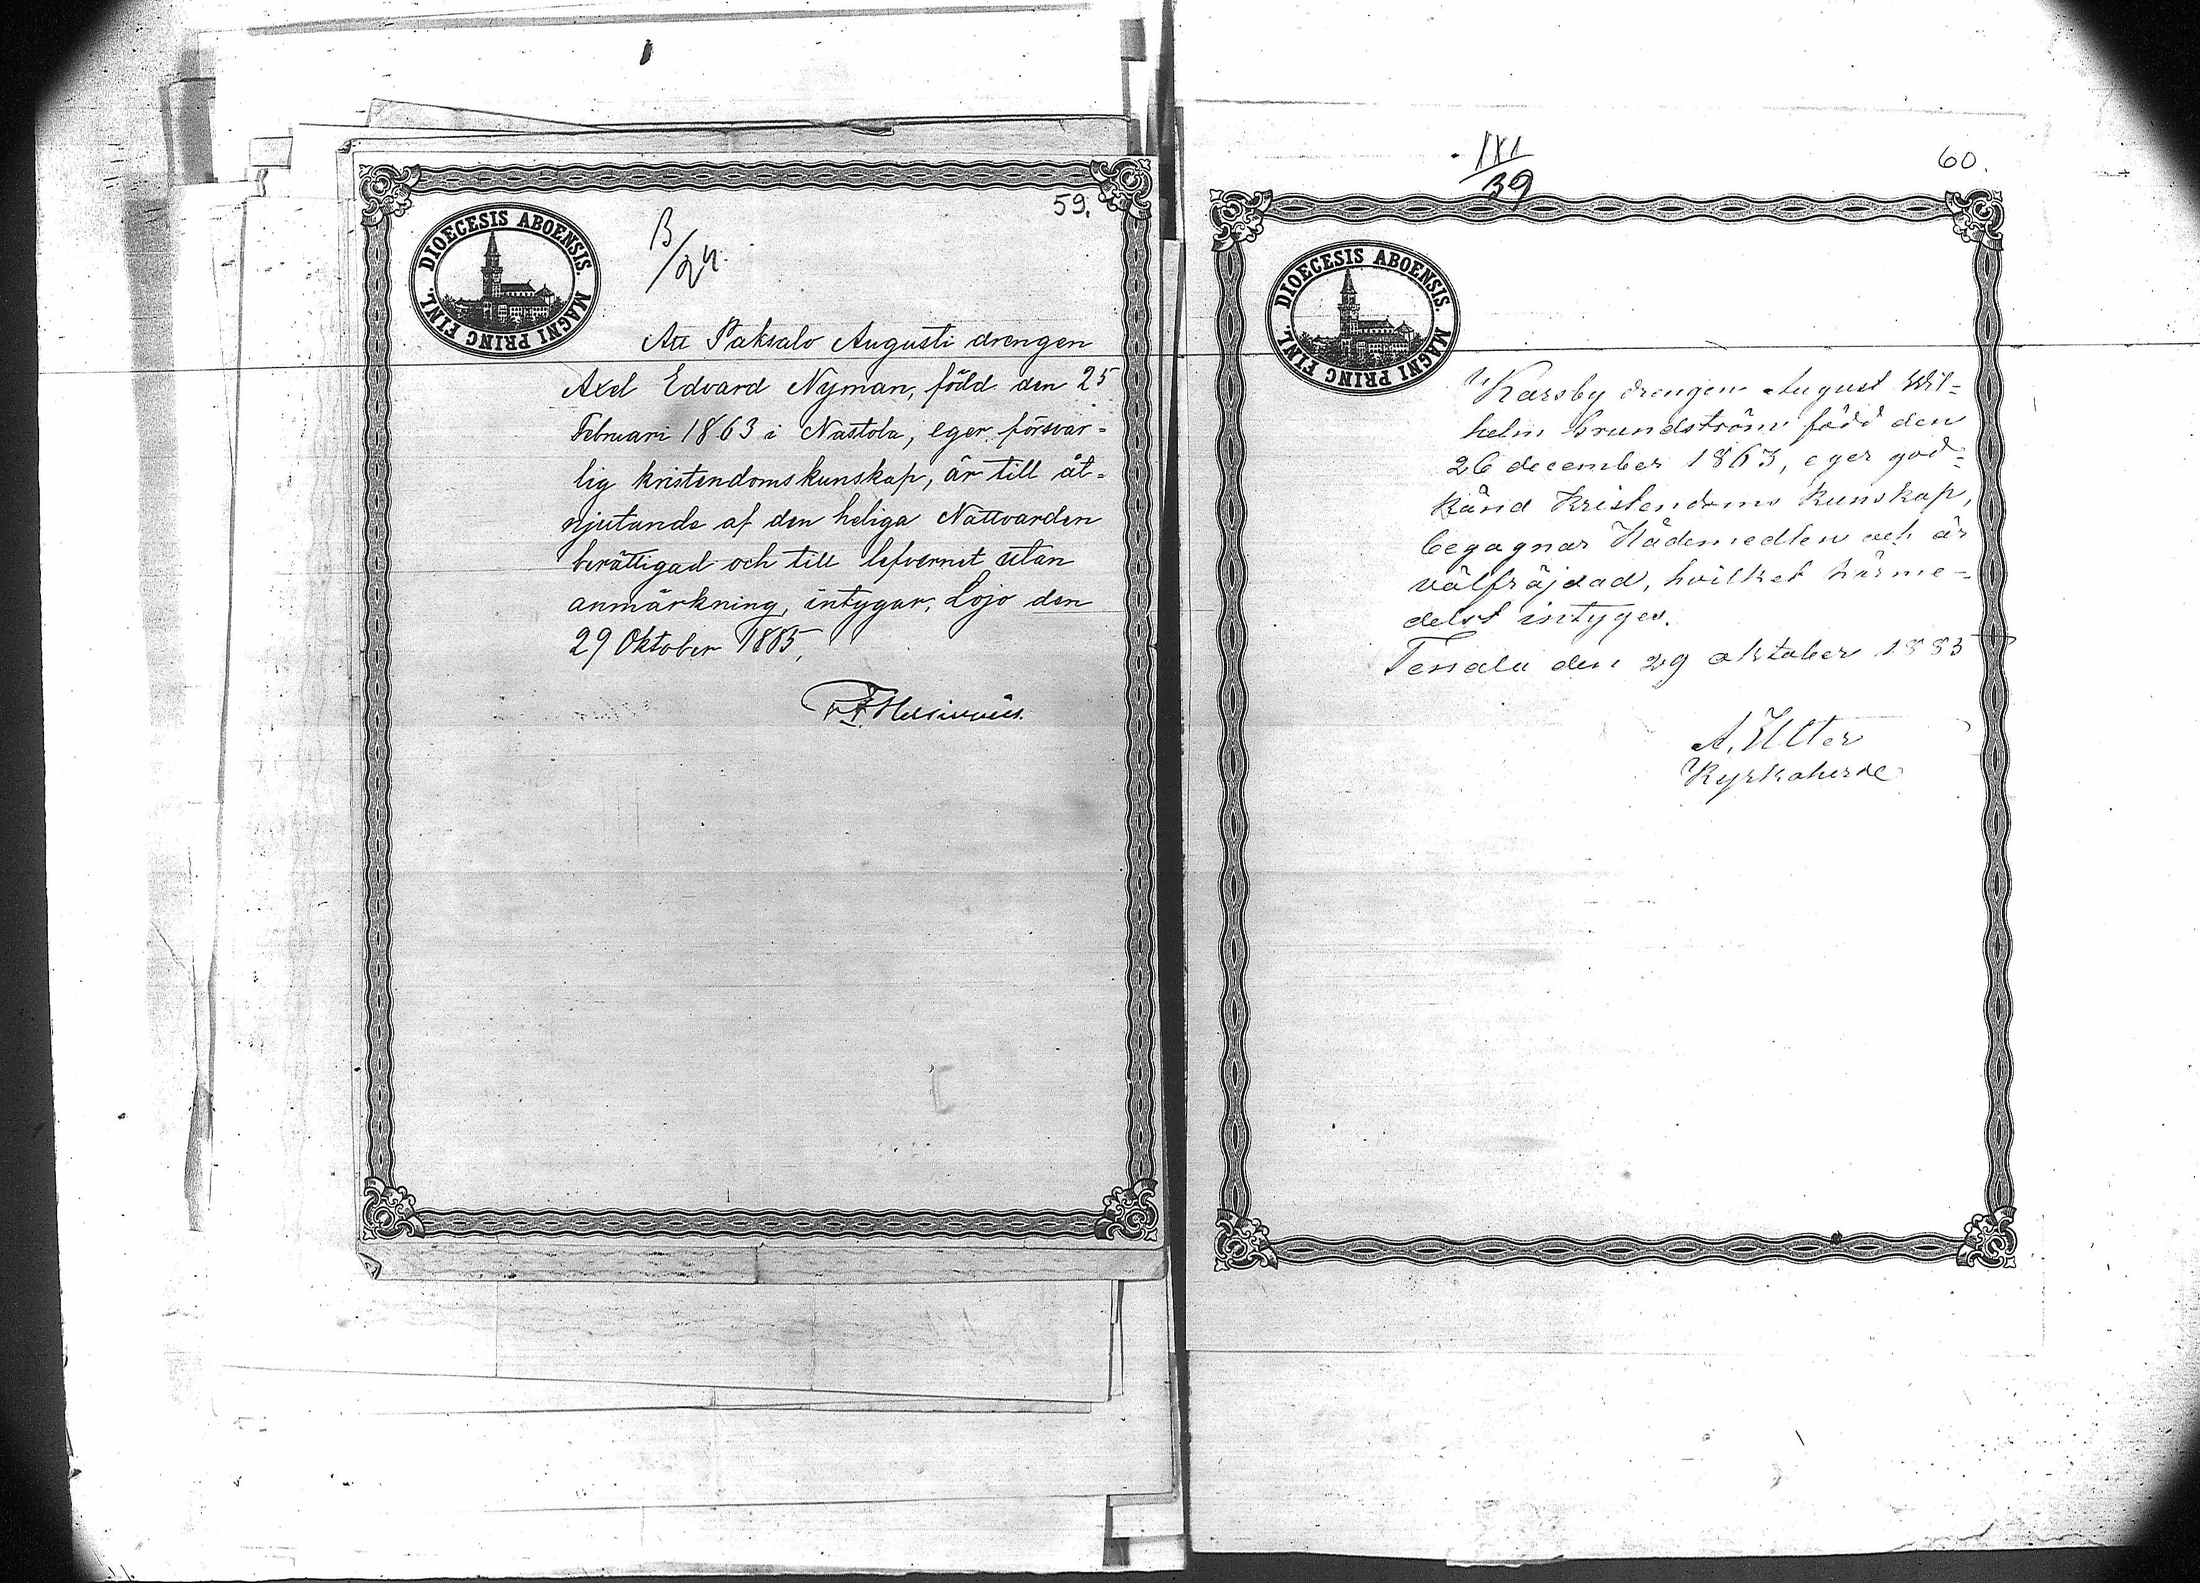 59.
DIOECESIS ABOENSIS.
MAGNI PRINC FINL.
B/24.
Att Paksalo Augusti drengen
Axel Edvard Nyman, född den 25
Februari 1863 i Nastola, eger försvar=
lig kristendomskunskap, är till åt=
njutande af den heliga Nattvarden
berättigad och till lefvernet utan
anmärkning, intygar, Lojo den
29 Oktober 1885,
60.
IXI/39
DIOECESIS ABOENSIS.
MAGNI PRINC FINL.
Karsby drengen August Wil=
helm Grundström född den
26 december 1863, eger god=
känd Kristendoms kunskap,
begagnar Nådemedlen och är
välfräjdad, hvilket härme=
delst intygas.
Tenala den 29 oktober 1885
A.
Kyrkoherde